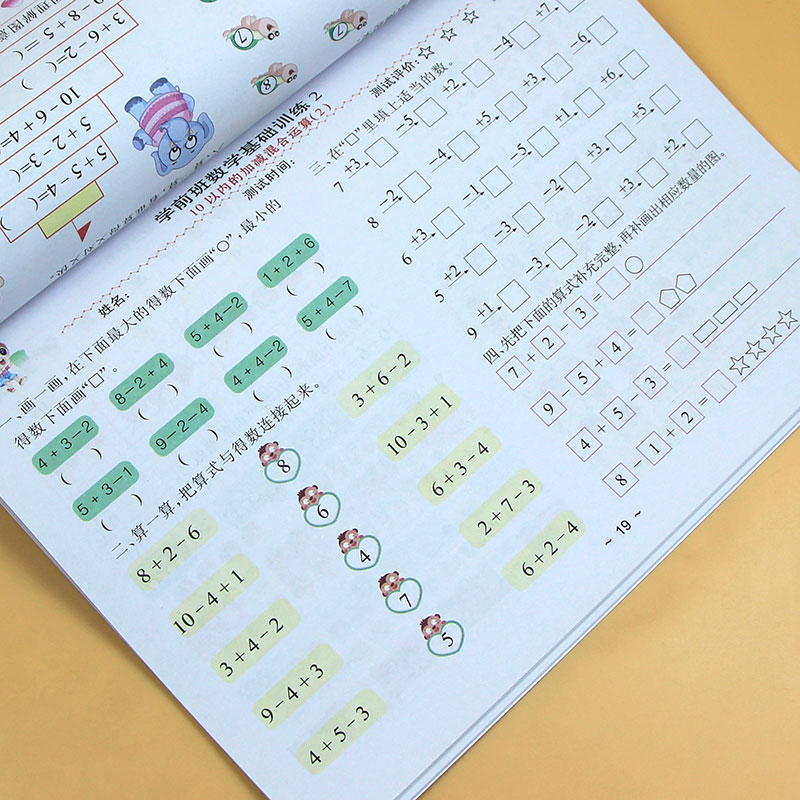 9-8+5=(
3+6-2=( )
10-6+4=
5+2-3=(
5+5-4=(
7
7
8
学前班数学基础训练 2
10以内的加减混合运算(2)
姓名:
测试时间:
测试评价:☆ ☆ ☆
一、画一画,在下面最大的得数下面画“○”,最小的
得数下面画“□”。
4+3-2 8-2+4 5+4-2 1+2+6
( ) ( ) ( ) ( )
5+3-1 9-2-4 4+4-2 5+4-7
( ) ( ) ( ) ( )
二、算一算,把算式与得数连接起来。
8+2-6 8 3+6-2
10-4+1 6 10-3+1
3+4-2 4 6+3-4
9-4+3 7 2+7-3
4+5-3 5 6+2-4
三、在“□”里填上适当的数。
7 +3 □ -5 □ +2 □ -4 □ +7 □
8 -2 □ 4 □ +5 □ +3 □ -6 □
6 +3 □ -1 □ -5 □ +1 □ +6 □
5 +2 □ -3 □ -2 □ +3 □ +5 □
9 +1 □ -3 □ -2 □ +3 □
四、先把下面的算式补充完整,再补画出相应数量的图。
7+2-3=□ ○
9-5+4=□
4+5-3=□
8-1+2=□ ☆☆☆☆
~ 19 ~